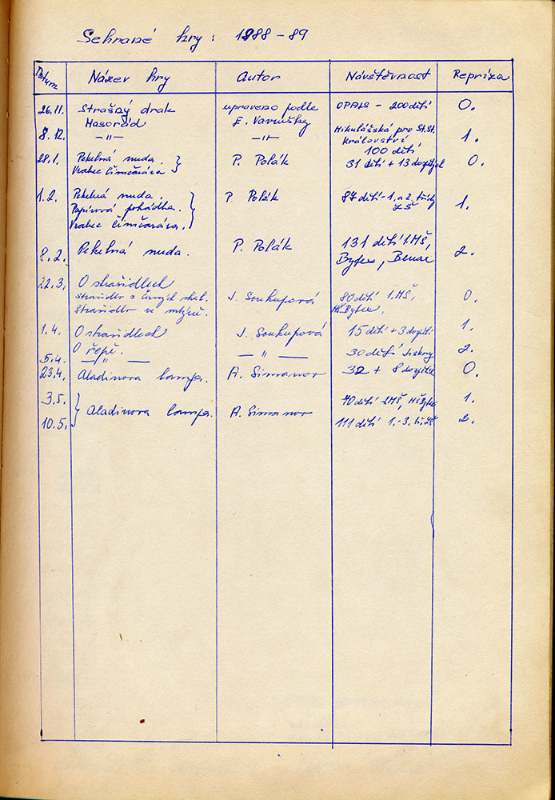 Sehrané hry: 1988-89
Datum Název hry Autor Návštěvnost Repríza
26.11. Strašný drak upraveno podle OPPHS - 200 dětí 0.
Masožrád F. Vavřičky
8.12. —"— —"— Mikulášská pro St.St. 1.
Království
100 dětí
28.1. Pekelná nuda. P. Polák 31 dětí + 13 dospělých 0.
Vrabec Čimčarára
1.2. Pekelná nuda. P. Polák 87 dětí - 1. a 2. třídy 1.
Papírová pohádka. ZŠ
Vrabec Čimčarára.
8.2. Pekelná nuda. P. Polák 131 dětí 2MŠ, 2.
Bytex, Benar
22.3. O strašidlech J. Soukupová 80 dětí 1.MŠ, 0.
Strašidlo v mlýně.
1.4. O strašidlech J. Soukupová 15 dětí + 3 dospělí 1.
O řepě.
5.4. —"— —"— 30 dětí Jiskry 2.
23.4. Aladinova lampa. A. Simanov 32 + 8 dospělí 0.
3.5. Aladinova lampa. A. Simanov 70 dětí 2MŠ, MŠ Bytex 1.
10.5. 111 dětí 1.-3. tř. ZŠ 2.